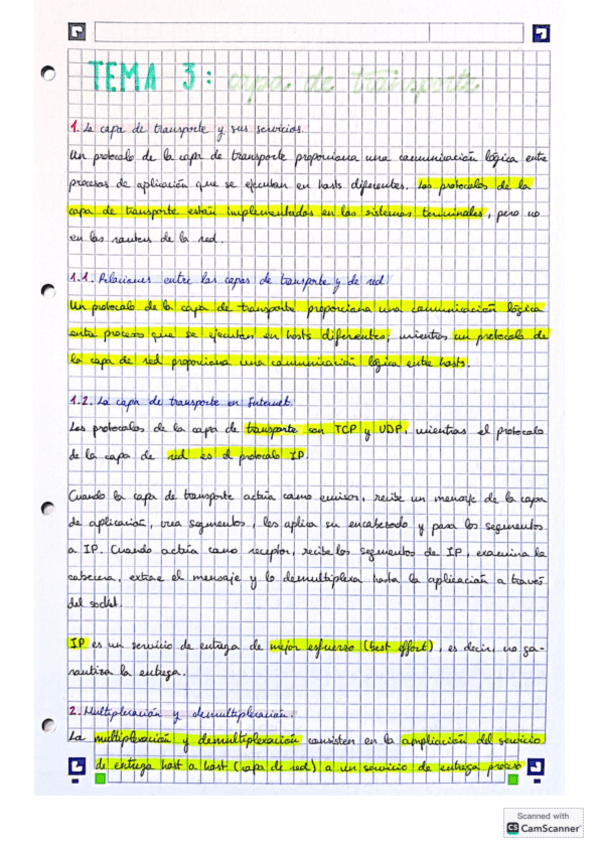 TEMA 3: capa de transporte
1. La capa de transporte y sus servicios.
Un protocolo de la capa de transporte proporciona una comunicación lógica entre
procesos de aplicación que se ejecutan en hosts diferentes. Los protocolos de la
capa de transporte están implementados en los sistemas terminales, pero no
en los routers de la red.
1.1. Relaciones entre las capas de transporte y de red.
Un protocolo de la capa de transporte proporciona una comunicación lógica
entre procesos que se ejecutan en hosts diferentes, mientras un protocolo de
la capa de red proporciona una comunicación lógica entre hosts.
1.2. La capa de transporte en Internet.
Los protocolos de la capa de transporte son TCP y UDP, mientras el protocolo
de la capa de red es el protocolo IP.
Cuando la capa de transporte actúa como emisor, recibe un mensaje de la capa
de aplicación, crea segmentos, les aplica su encabezado y pasa los segmentos
a IP. Cuando actúa como receptor, recibe los segmentos de IP, examina la
cabecera, extrae el mensaje y lo demultiplexa hasta la aplicación a través
del socket.
IP es un servicio de entrega de mejor esfuerzo (best effort), es decir, no ga-
rantiza la entrega.
2. Multiplexación y demultiplexación.
La multiplexación y demultiplexación consisten en la ampliación del servicio
de entrega host a host (capa de red) a un servicio de entrega proceso
Scanned with
CS CamScanner